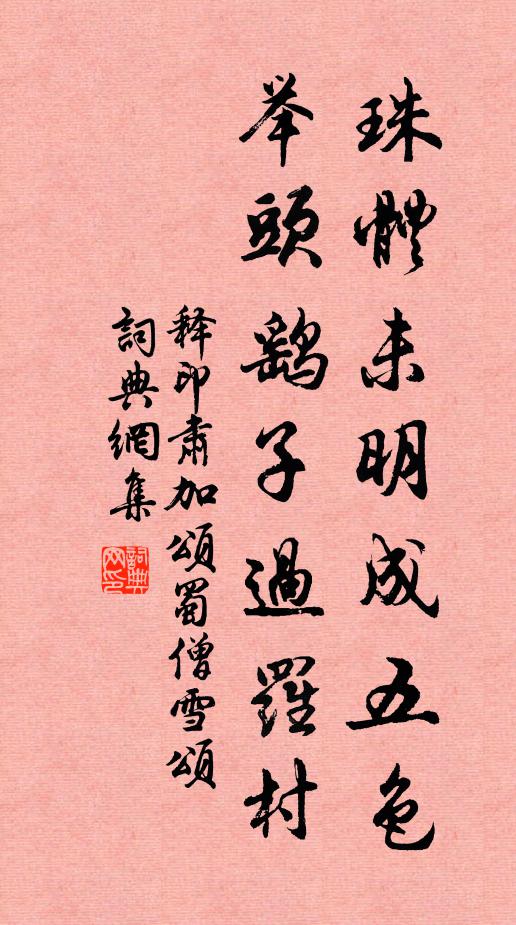 珠體未明成五色
举頭鷂子過羅村
释印肃加頌蜀僧雪頌
詞典網集
詞典网印